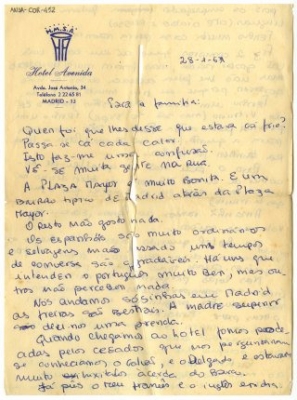 H.A.S.A.
Hotel Avenida
Avda. José Antonio, 34
Teléfono 2 22 65 81
MADRID - 13
Para a família:
Quem foi que lhes disse que estava cá frio?
Passa-se cá cada calor.
Isto faz-me uma confusão.
Vê-se muita gente na rua.
A Plaza Mayor é muito bonita. É um
bairro típico de Madrid atrás da Plaza
Mayor.
O resto não gosto nada.
Os espanhóis são muito ordinários
e selvagens mas passado uns tempos
de conversa são agradáveis. Há uns que
entendem o português muito bem, mas ou-
tros não percebem nada.
Nós andamos sózinhas em Madrid
as freiras são bestiais. A madre superior
deu-me uma prenda.
Quando chegámos ao hotel fomos
cadas pelos criados que nos perguntaram
se conhecíamos o Galvão, e o Delgado e estavam
muito acerca do barco.
Já pus o meu francês e o inglês em dia.